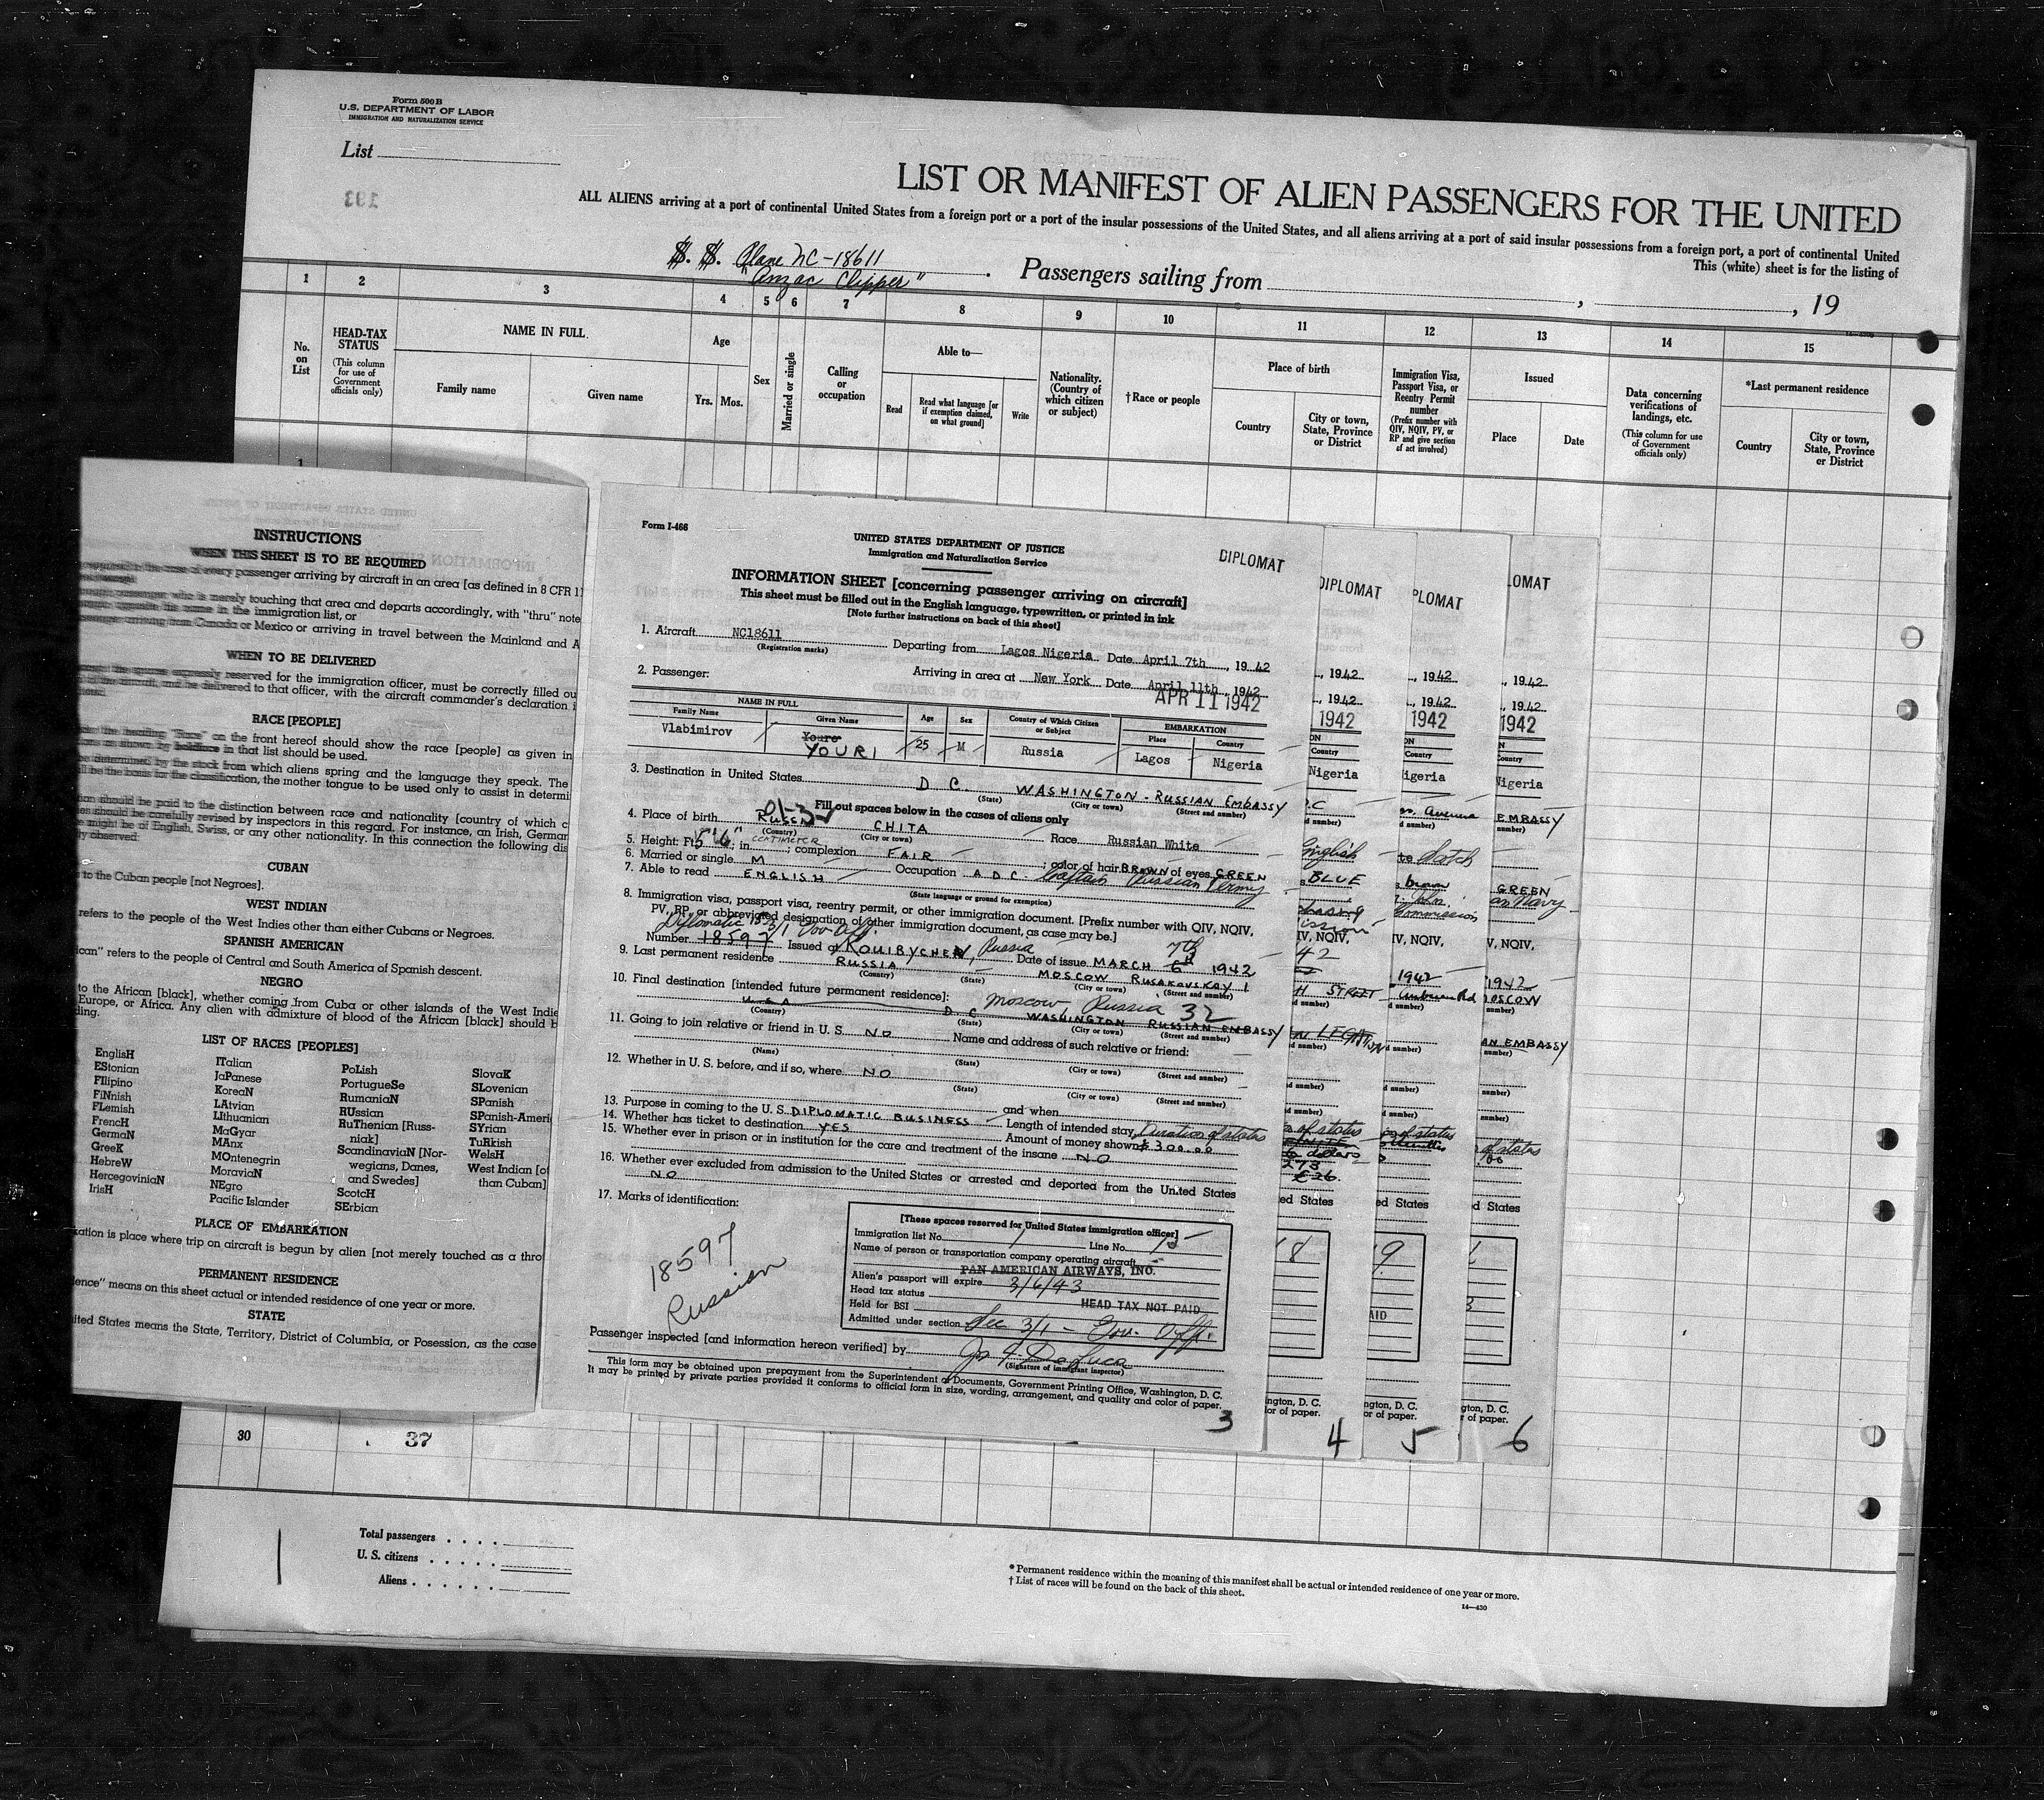 Form 500 B
U.S. DEPARTMENT OF LABOR
IMMIGRATION AND NATURALIZATION SERVICE
List
LIST OR MANIFEST OF ALIEN PASSENGERS FOR THE UNITED
ALL ALIENS arriving at a port of continental United States from a foreign port or a port of the insular possessions of the United States, and all aliens arriving at a port of said insular possessions from a foreign port, a port of continental United
This (white) sheet is for the listing of
S. S. Plane NC-18611
"Anzac Clipper"
Passengers sailing from , , 19
1 2 3 4 5 6 7 8 9 10 11 12 13 14 15
No. on List
HEAD-TAX STATUS
(This column for use of Government officials only)
NAME IN FULL
Family name
Given name
Age
Yrs. Mos.
Sex
Married or single
Calling or occupation
Able to—
Read
Read what language [or if exemption claimed, on what ground]
Write
Nationality. (Country of which citizen or subject)
†Race or people
Place of birth
Country
City or town, State, Province or District
Immigration Visa, Passport Visa, or Reentry Permit number
(Prefix number with QIV, NQIV, PV, or RP and give section of act involved)
Issued
Place
Date
Data concerning verifications of landings, etc.
(This column for use of Government officials only)
*Last permanent residence
Country
City or town, State, Province or District
INSTRUCTIONS
WHEN THIS SHEET IS TO BE REQUIRED
every passenger arriving by aircraft in an area [as defined in 8 CFR 11
passenger who is merely touching that area and departs accordingly, with "thru" note
his name in the immigration list, or
arriving from Canada or Mexico or arriving in travel between the Mainland and A
WHEN TO BE DELIVERED
the spaces expressly reserved for the immigration officer, must be correctly filled ou
aircraft, and be delivered to that officer, with the aircraft commander's declaration i
RACE [PEOPLE]
the heading "Race" on the front hereof should show the race [people] as given in
as shown by boldface in that list should be used.
determined by the stock from which aliens spring and the language they speak. The
be the basis for the classification, the mother tongue to be used only to assist in determi
should be paid to the distinction between race and nationality [country of which c
should be carefully revised by inspectors in this regard. For instance, an Irish, German
might be of English, Swiss, or any other nationality. In this connection the following dis
observed:
CUBAN
to the Cuban people [not Negroes].
WEST INDIAN
refers to the people of the West Indies other than either Cubans or Negroes.
SPANISH AMERICAN
can" refers to the people of Central and South America of Spanish descent.
NEGRO
to the African [black], whether coming from Cuba or other islands of the West Indie
Europe, or Africa. Any alien with admixture of blood of the African [black] should b
ding.
LIST OF RACES [PEOPLES]
EnglisH ITalian PoLish SlovaK
EStonian JaPanese PortugueSe SLovenian
FIlipino KoreaN RumaniaN SPanish
FiNnish LAtvian RUssian SPanish-Americ
FLemish LIthuanian RuThenian [Russ- SYrian
FrencH MaGyar niak] TuRkish
GermaN MAnx ScandinaviaN [Nor- WelsH
GreeK MOntenegrin wegians, Danes, West Indian [o
HebreW MoraviaN and Swedes] than Cuban]
HercegoviniaN NEgro ScotcH
IrisH Pacific Islander SErbian
PLACE OF EMBARKATION
kation is place where trip on aircraft is begun by alien [not merely touched as a thro
PERMANENT RESIDENCE
ence" means on this sheet actual or intended residence of one year or more.
STATE
ited States means the State, Territory, District of Columbia, or Posession, as the case
Form I-466
UNITED STATES DEPARTMENT OF JUSTICE
Immigration and Naturalization Service
DIPLOMAT
INFORMATION SHEET [concerning passenger arriving on aircraft]
This sheet must be filled out in the English language, typewritten, or printed in ink
[Note further instructions on back of this sheet]
1. Aircraft NC18611 Departing from Lagos Nigeria Date April 7th, 1942
(Registration marks)
2. Passenger: Arriving in area at New York Date April 11th, 1942
APR 11 1942
NAME IN FULL
Family Name Given Name Age Sex Country of Which Citizen or Subject EMBARKATION Place Country
Vlabimirov Youre YOURI 25 M Russia Lagos Nigeria
3. Destination in United States D C. WASHINGTON - RUSSIAN EMBASSY
(State) (City or town) (Street and number)
Fill out spaces below in the cases of aliens only
4. Place of birth RUSSIA CHITA Race Russian White
(Country) (City or town)
5. Height: Ft. 5'6"; in. CENTIMETER; complexion FAIR; color of hair BROWN of eyes GREEN
6. Married or single M Occupation A D C. Captain Russian Army
7. Able to read ENGLISH
(State language or ground for exemption)
8. Immigration visa, passport visa, reentry permit, or other immigration document. [Prefix number with QIV, NQIV,
PV, RP, or abbreviated designation of other immigration document, as case may be.]
Diplomatic 3/1 Gov Off.
Number 18597 Issued at KOUIBYCHEV, Russia Date of issue MARCH 6 7th 1942
9. Last permanent residence RUSSIA MOSCOW RUSAKOVSKAY 1
(Country) (State) (City or town) (Street and number)
10. Final destination [intended future permanent residence]: Moscow Russia 32
U.S.A D C WASHINGTON RUSSIAN EMBASSY
(Country) (State) (City or town) (Street and number)
11. Going to join relative or friend in U. S. NO Name and address of such relative or friend:
(Name) (State) (City or town) (Street and number)
12. Whether in U. S. before, and if so, where NO
(State) (City or town) (Street and number)
13. Purpose in coming to the U. S. DIPLOMATIC BUSINESS and when
14. Whether has ticket to destination YES Length of intended stay Duration of status
Amount of money shown $300.00
15. Whether ever in prison or in institution for the care and treatment of the insane NO
16. Whether ever excluded from admission to the United States or arrested and deported from the United States
NO
17. Marks of identification:
18597
Russian
[These spaces reserved for United States immigration officer]
Immigration list No. 1 Line No. 15
Name of person or transportation company operating aircraft
PAN AMERICAN AIRWAYS, INC.
Alien's passport will expire 3/6/43
Head tax status HEAD TAX NOT PAID
Held for BSI
Admitted under section Sec 3/1 - Gov. Off.
Passenger inspected [and information hereon verified] by
(Signature of immigrant inspector)
This form may be obtained upon prepayment from the Superintendent of Documents, Government Printing Office, Washington, D. C.
It may be printed by private parties provided it conforms to official form in size, wording, arrangement, and quality and color of paper.
3
DIPLOMAT
1942
Nigeria
English
BLUE
H STREET
LEGATION
ed States
8
4
PLOMAT
1942
igeria
Avenue
Scotch
brown
Commission
9
5
LOMAT
1942
Nigeria
EMBASSY
GREEN
an Navy
MOSCOW
AN EMBASSY
6
30 37
Total passengers
U. S. citizens
Aliens
* Permanent residence within the meaning of this manifest shall be actual or intended residence of one year or more.
† List of races will be found on the back of this sheet.
14—430